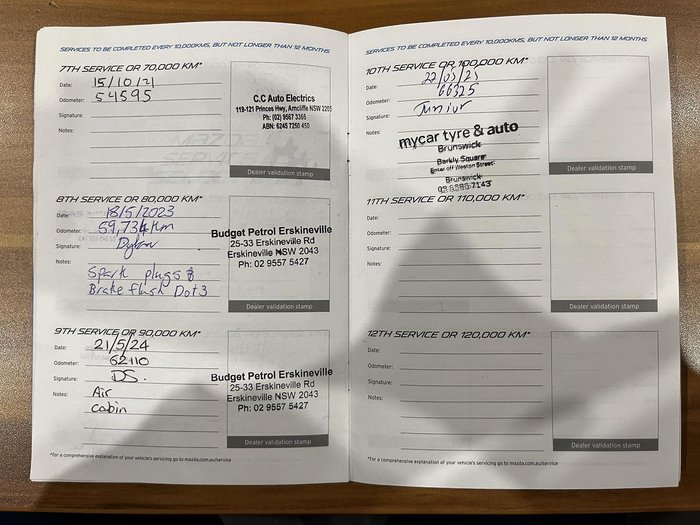 SERVICES TO BE COMPLETED EVERY 10,000KMS, BUT NOT LONGER THAN 12 MONTHS
7TH SERVICE OR 70,000 KM*
Date: 15/10/21
Odometer: 54595
Signature:
Notes:
C.C Auto Electrics
119-121 Princes Hwy, Arncliffe NSW 2205
Ph: (02) 9567 3366
ABN: 6245 7250 450
Dealer validation stamp
8TH SERVICE OR 80,000 KM*
Date: 18/5/2023
Odometer: 59,734km
Signature:
Notes:
Spark plugs &
Brake flush Dot3
Budget Petrol Erskineville
25-33 Erskineville Rd
Erskineville NSW 2043
Ph: 02 9557 5427
Dealer validation stamp
9TH SERVICE OR 90,000 KM*
Date: 21/5/24
Odometer: 62110
Signature: DS.
Notes: Air
cabin
Budget Petrol Erskineville
25-33 Erskineville Rd
Erskineville NSW 2043
Ph: 02 9557 5427
Dealer validation stamp
*For a comprehensive explanation of your vehicle's servicing go to mazda.com.au/service
SERVICES TO BE COMPLETED EVERY 10,000KMS, BUT NOT LONGER THAN 12 MONTHS
10TH SERVICE OR 100,000 KM*
Date: 22/05/25
Odometer: 66325
Signature: Junior
Notes:
mycar tyre & auto
Brunswick
Barkly Square
Enter off Weston Street
Brunswick
Dealer validation stamp
11TH SERVICE OR 110,000 KM*
Date:
Odometer:
Signature:
Notes:
Dealer validation stamp
12TH SERVICE OR 120,000 KM*
Date:
Odometer:
Signature:
Notes:
Dealer validation stamp
*For a comprehensive explanation of your vehicle's servicing go to mazda.com.au/service